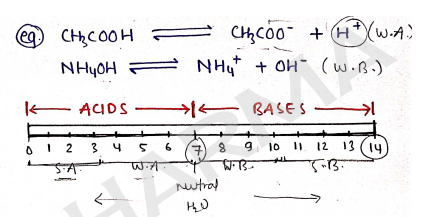 eg. CH3COOH ⇌ CH3COO⁻ + H⁺ (W.A.)
NH4OH ⇌ NH4⁺ + OH⁻ (W.B.)
ACIDS BASES
0 1 2 3 4 5 6 7 8 9 10 11 12 13 14
S.A. W.A. W.B. S.B.
Nutral
H2O
HARMA